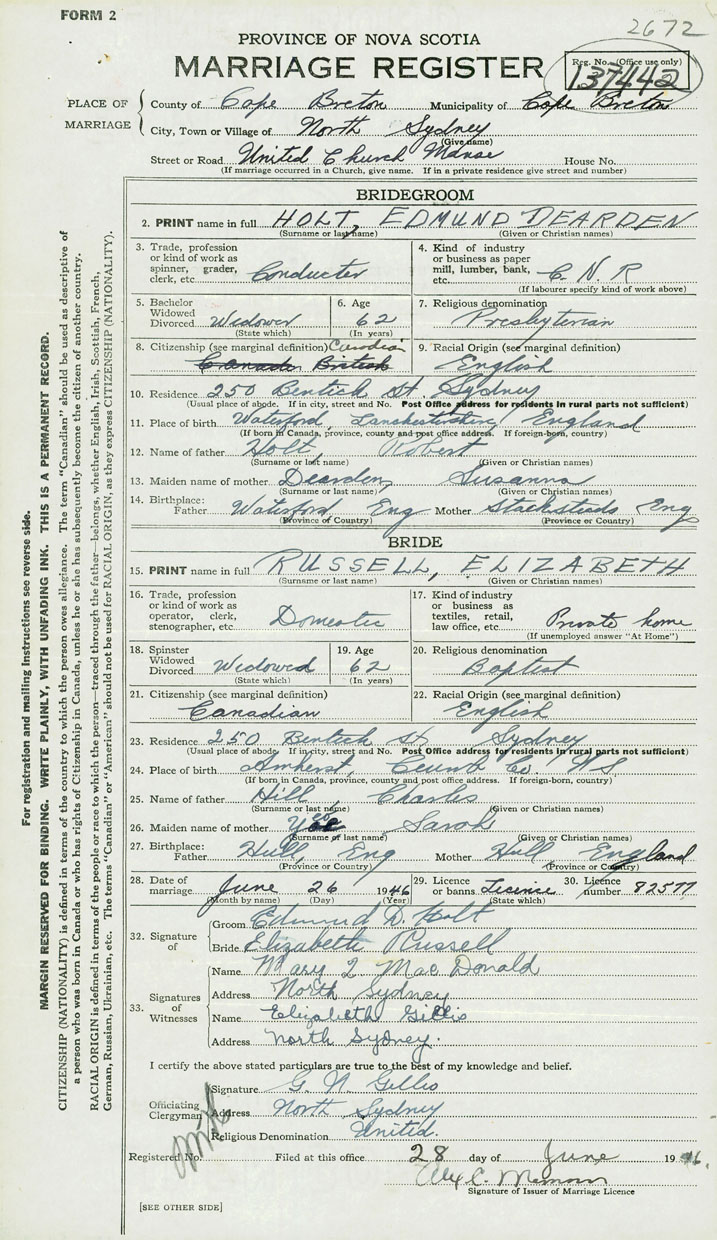 FORM 2
2672
PROVINCE OF NOVA SCOTIA
MARRIAGE REGISTER
Reg. No. (Office use only)
137442
PLACE OF MARRIAGE
County of Cape Breton Municipality of Cape Breton
City, Town or Village of North Sydney
(Give name)
Street or Road United Church Manse House No.
(If marriage occurred in a Church, give name. If in a private residence give street and number)
BRIDEGROOM
2. PRINT name in full HOLT, EDMUND DEARDEN
(Surname or last name) (Given or Christian names)
3. Trade, profession or kind of work as spinner, grader, clerk, etc. Conductor
4. Kind of industry or business as paper mill, lumber, bank, etc. C N R
(If labourer specify kind of work above)
5. Bachelor Widowed Divorced Widower
(State which)
6. Age 62
(In years)
7. Religious denomination Presbyterian
8. Citizenship (see marginal definition) Canadian
Canada British
9. Racial Origin (see marginal definition) English
10. Residence 250 Bentick St. Sydney
(Usual place of abode. If in city, street and No. Post Office address for residents in rural parts not sufficient)
11. Place of birth Waterford, England
(If born in Canada, province, county and post office address. If foreign-born, country)
12. Name of father Holt, Robert
(Surname or last name) (Given or Christian names)
13. Maiden name of mother Dearden, Susanna
(Surname or last name) (Given or Christian names)
14. Birthplace: Father Waterford Eng Mother Stacksteads Eng
(Province or Country) (Province or Country)
BRIDE
15. PRINT name in full RUSSELL, ELIZABETH
(Surname or last name) (Given or Christian names)
16. Trade, profession or kind of work as operator, clerk, stenographer, etc. Domestic
17. Kind of industry or business as textiles, retail, law office, etc. Private home
(If unemployed answer "At Home")
18. Spinster Widowed Divorced Widowed
(State which)
19. Age 62
(In years)
20. Religious denomination Baptist
21. Citizenship (see marginal definition) Canadian
22. Racial Origin (see marginal definition) English
23. Residence 250 Bentick St Sydney
(Usual place of abode. If in city, street and No. Post Office address for residents in rural parts not sufficient)
24. Place of birth Amherst, Cumb Co. N S
(If born in Canada, province, county and post office address. If foreign-born, country)
25. Name of father Hill Charles
(Surname or last name) (Given or Christian names)
26. Maiden name of mother Sarah
(Surname or last name) (Given or Christian names)
27. Birthplace: Father Hull, Eng Mother Hull England
(Province or Country) (Province or Country)
28. Date of marriage June 26 1946
(Month by name) (Day) (Year)
29. Licence or banns Licence
(State which)
30. Licence number 82577
32. Signature of
Groom Edmund D. Holt
Bride Elizabeth Russell
33. Signatures of Witnesses
Name Mary L MacDonald
Address North Sydney
Name Elizabeth Gillis
Address North Sydney.
I certify the above stated particulars are true to the best of my knowledge and belief.
Officiating Clergyman
Signature G. N. Gillis
Address North Sydney
Religious Denomination United.
Registered No. Filed at this office 28 day of June 1946.
Signature of Issuer of Marriage Licence
[SEE OTHER SIDE]
For registration and mailing instructions see reverse side.
MARGIN RESERVED FOR BINDING. WRITE PLAINLY, WITH UNFADING INK. THIS IS A PERMANENT RECORD.
CITIZENSHIP (NATIONALITY) is defined in terms of the country to which the person owes allegiance. The term "Canadian" should be used as descriptive of
a person who was born in Canada or who has rights of Citizenship in Canada, unless he or she has subsequently become the citizen of another country.
RACIAL ORIGIN is defined in terms of the people or race to which the person—traced through the father—belongs, whether English, Irish, Scottish, French,
German, Russian, Ukrainian, etc. The terms "Canadian" or "American" should not be used for RACIAL ORIGIN, as they express CITIZENSHIP (NATIONALITY).